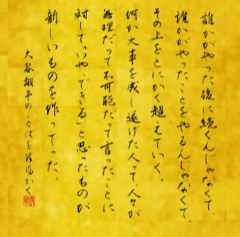 誰かがやった後に続くんじゃなくて、
誰かがやったことをやるんじゃなくて、
その上をとにかく超えていく。
何か大事を成し遂げた人って、人々が
無理だって不可能だって言ったことに
対していや、できると思ったものが
新しいものを作ってった。
大谷翔平のことばを